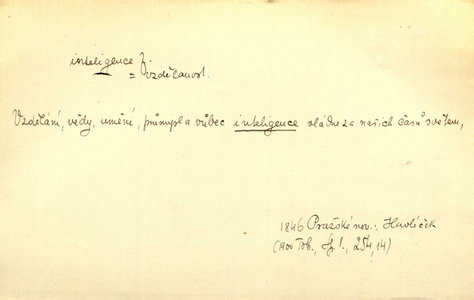 inteligence f.
= vzdělanost.
Vzdělání, vědy, umění, průmysl a vůbec inteligence vládne za našich časů světem,
1846 Pražské nov.: Havlíček
(1900 Tob., Sp. I., 254, 14)